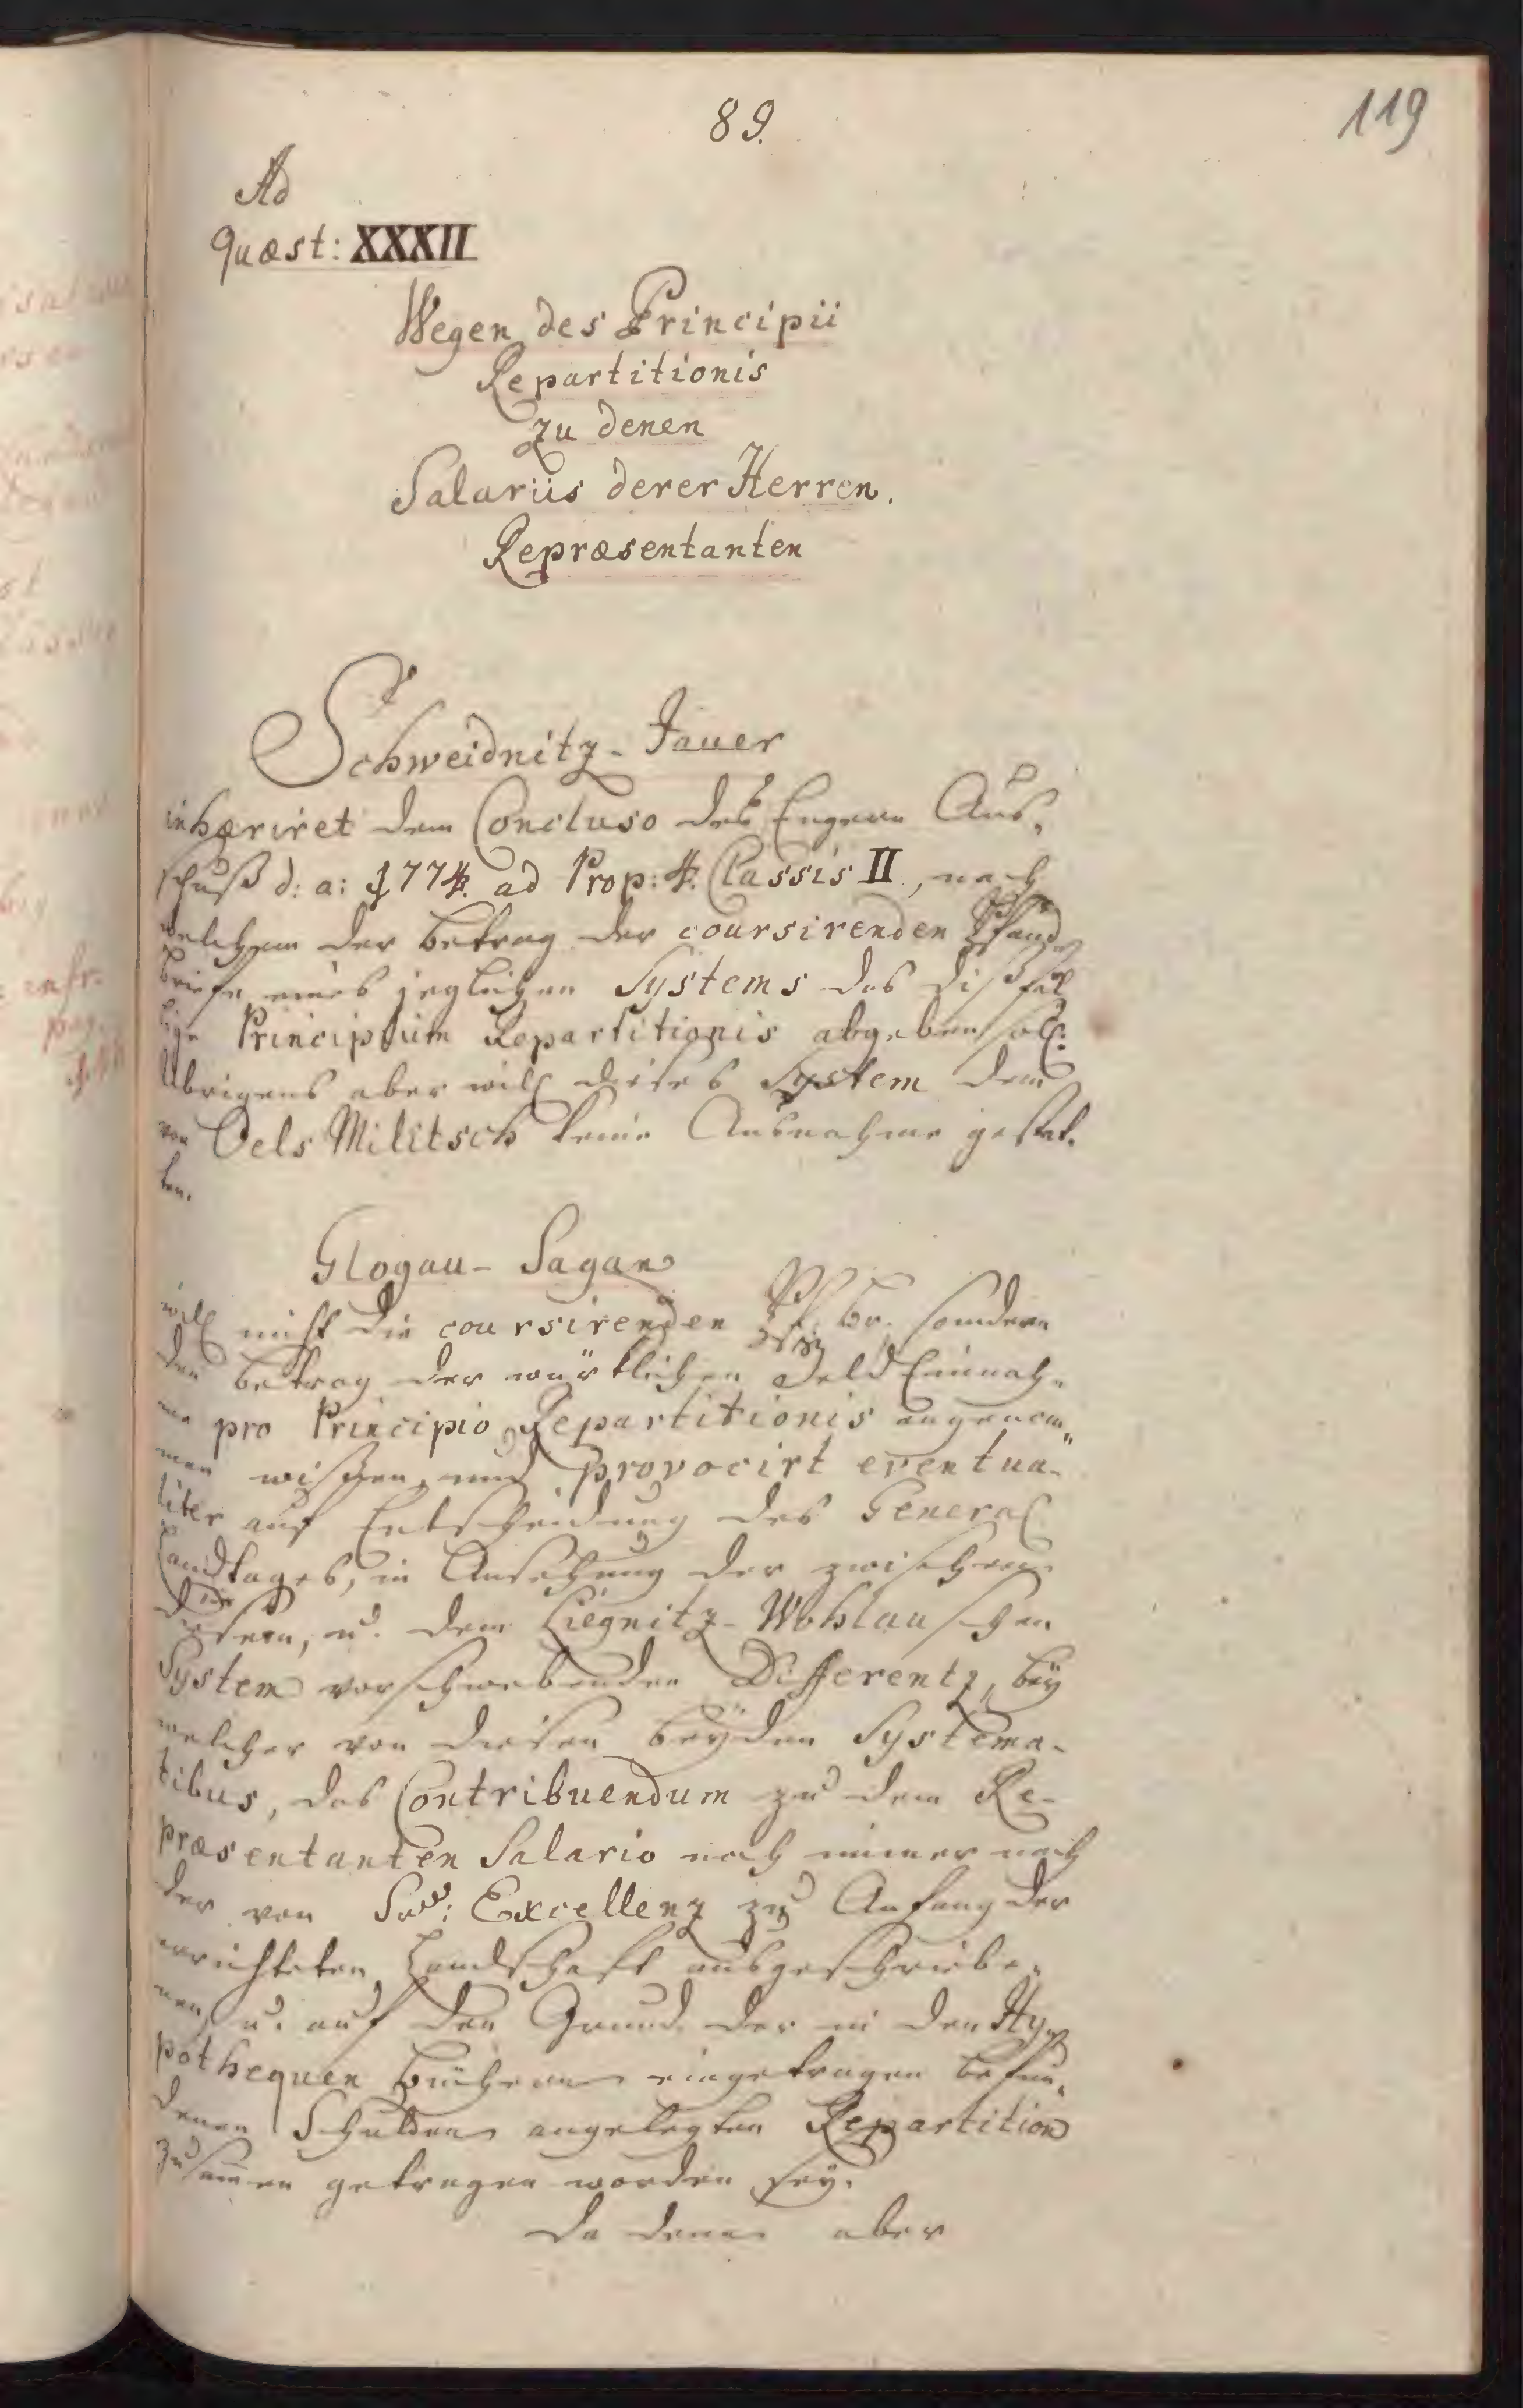 89.
119
Ad
Quæst: XXXII
Wegen des Principii
Repartitionis
zu denen
Salariis derer Herren.
Repræsentanten
Schweidnitz-Jauer
inhæriret dem Concluso des Engern Aus,
schuß d: a: 1774. ad Prop: 4. Classis II, nach
welchem der Betrag der coursirenden Pfand
briefe eines jeglichen Systems das dißfäl
lige Principium Repartitionis abgeben soll:
Übrigens aber will dieses System dem
von Oels Militsch keine Ausnahme gestat.
ten.
Glogau-Sagan
will nicht die coursirenden Pf. br. sondern
den Betrag der würklichen Geld Einnah-
me pro Principio Repartitionis angenom„
men wißen, und provocirt eventua-
liter auf Entscheidung des General
Landtages, in Ansehung der zwischen
diesem, u. dem Liegnitz-Wohlauschen
System vorschwebenden Differentz, bey
welcher von diesen beyden Systema-
tibus, das Contribuendum zu dem Re-
præsentanten Salario noch immer nach
der von Sr: Excellenz zu Anfang der
errichteten Landschaft ausgeschriebe-
nen, u. auf den Grund der in den Hy-
pothequen Büchern eingetragen befun-
denen Schulden angelegten Repartition
zusam̅en getragen worden sey.
Da denn aber